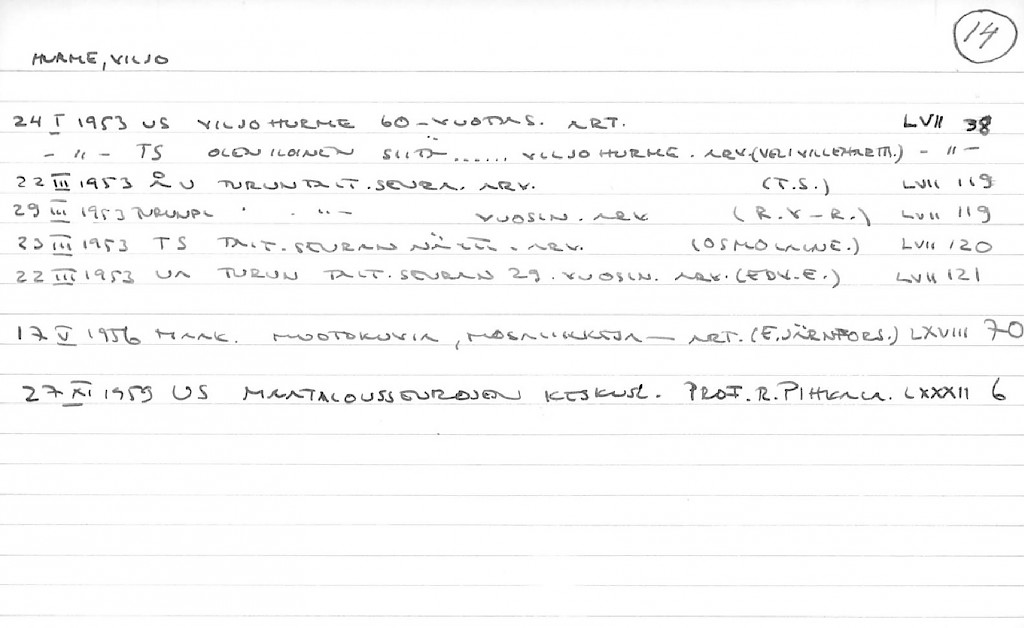 14
HURME, VILJO
24 I 1953 US VILJO HURME 60-VUOTIAS. ART. LVII 38
- " - TS OLEN ILOINEN SIITÄ...... VILJO HURME. ARV. (VELI VILLEHARTTI.) - " -
22 III 1953 ÅU TURUN TAIT. SEURA. ARV. (T.S.) LVII 119
29 III 1953 TURUNPL ' . " - VUOSIN. ARV. (R.V-R.) LVII 119
23 III 1953 TS TAIT. SEURAN NÄTT. ARV. (OSMO LAINE.) LVII 120
22 III 1953 UA TURUN TAIT. SEURAN 29. VUOSIN. ARV. (EDV.E.) LVII 121
17 V 1956 MAAK. MUOTOKUVIA, MOSAIIKKEJA — ART. (E.JÄRNFORS.) LXVIII 70
27 XI 1959 US MAATALOUSSEUROJEN KESKUSL. PROF. R. PIHKALA. LXXXII 6